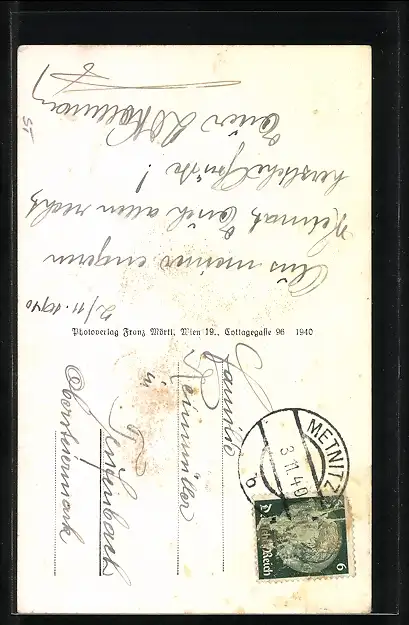 2/11. 1940
Aus meiner engeren
Heimat Euch allen recht
herzliche Grüße!
Euer
Photoverlag Franz Mörtl, Wien 19., Cottagegasse 96 1940
Familie
Reinmüller
in
Teufenbach
Obersteiermark
METNITZ
3.11.40
b
Deutsches Reich
6